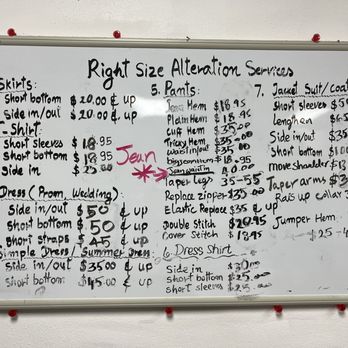 Right Size Alteration Services
Skirts:
Short bottom $20.00 & up
Side in/out $20.00 & up
- Shirt:
Short sleeves $18.95
Short bottom $18.95
Side in $25
Dress (Prom, Wedding):
Side in/out $50 & up
Short bottom $50 & up
Short straps $45 & up
Simple Dress/ Summer Dress:
Side in/out $35.00 & up
Short bottom $45.00 & up
Jean
5. Pants:
Jean Hem $18.95
Plain Hem $18.95
Cuff Hem $35.00
Tricky Hem $35.00
Waist in/out $35.00
$18.95
40.00
Taper Legs 35-55
Replace zipper $35.00
Elastic Replace $35 & up
Double Stitch $20.95
Cover Stitch $18.95
6. Dress Shirt
Side in $30.00
Short bottom $25.00
Short sleeves $25.00
7. Jacket Suit/Coat
Short sleeves $5
lenghen
Side in/out $35
Short bottom $
move shoulder
Taper arms $3
Rais up collar
Jumper Hem
$25 -